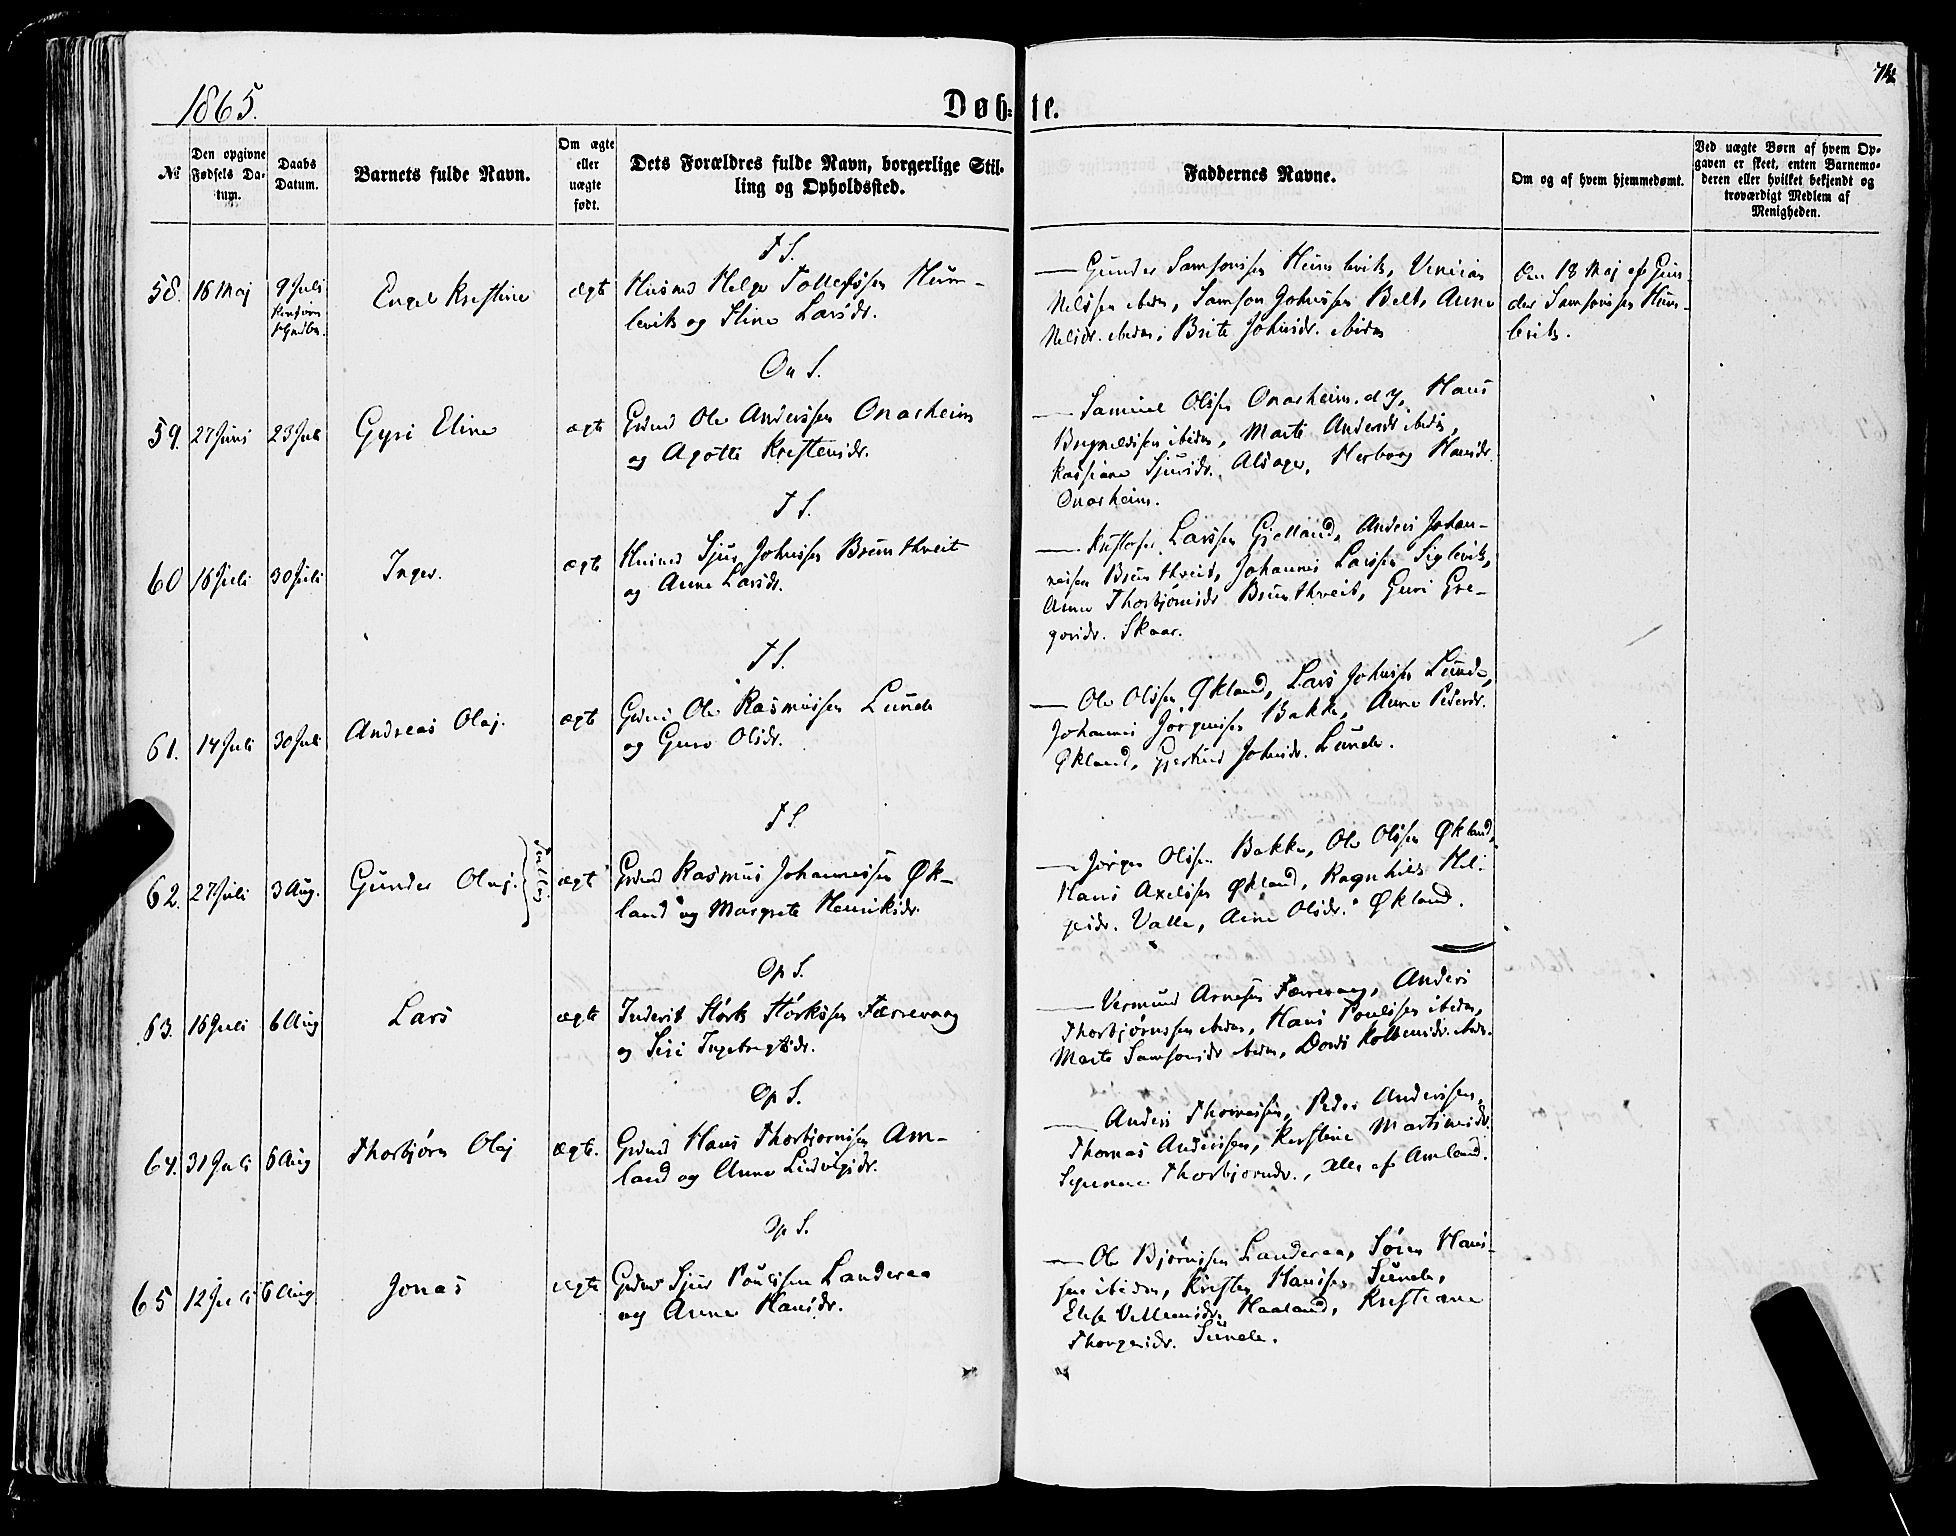 74
1865.
Døb-
te.
№
Den opgivne
Fødsels Da-
tum.
Daabs
Datum.
Barnets fulde Navn.
Om ægte
eller
uægte
født.
Dets Forældres fulde Navn, borgerlige Stil-
ling og Opholdssted.
Faddernes Navne.
Om og af hvem hjemmedømt.
Ved uægte Børn af hvem Op-
gaven er skeet, enten Barnemo-
deren eller hvilket bekjendt og
troværdigt Medlem af
Menigheden.
T S.
58. 16 Maj 9 Juli Engel Kristine ægte Husmd Helge Tollefsen Hum-
levik og Stine Larsdr.
— Gunder Samsonsen Humlevik,
Nelssen ibidm, Samson Johnssen Belt, Anne
Nelsdr. ibidm, Brite Johnsdr. ibidm
Den 18 Maj af Gun-
der Samsonsen Hum-
levik.
On S.
59. 27 Juni 23 Juli Gyri Eline ægte Grdmd Ole Anderssen Onarheim
og Agötte Kristensdr.
— Samuel Olsen Onarheim d y, Hans
Brynildsen ibidm, Marte Andersdr ibidm,
Sjursdr. Alsager, Herborg Hansdr.
Onarheim.
T S.
60 16 Juli 30 Juli Inger. ægte Husmd Sjur Johnssen Bruntveit
og Anne Larsdr.
— Kristofer Larssen Gjelland, Anders Johan-
nessen Bruntveit, Johannes Larssen Siglevik,
Anne Thorbjörnsdr Bruntveit, Guri Gre-
gorsdr. Skaar.
T S.
61. 14 Juli 30 Juli Andreas Olaj. ægte Grdmd Ole Rasmussen Lunde
og Guro Olsdr.
— Ole Olssen Økland, Lars Johnssen Lunde,
Johannes Jörgensen Bakke, Anne Pedersdr.
Økland, Gjertrud Johnsdr. Lunde.
T S.
62. 27 Juli 3 Aug. Gunder Olaj. ægte Grdmd Rasmus Johannessen Øk-
land og Margrete Henriksdr.
— Jörgen Olssen Bakke, Ole Olssen Økland,
Hans Axelssen Økland, Ragnhild Hel-
gesdr. Valle, Anne Olsdr. Økland.
Op S.
63. 16 Juli 6 Aug Lars ægte Inderst Störk Störkssen Færrevaag
og Siri Ingebregtsdr.
— Vermund Arnesen Færrevaag, Anders
Thorbjørnssen ibidm, Hans Poulssen ibidm,
Marte Samsonsdr ibidm, Dordi Kolbensdr. ibdm.
Op S.
64. 31 Juli 6 Aug Thorbjörn Olaj ægte. Grdmd Hans Thorbjornsen Am-
land og Anne Ludvigsdr.
— Anders Thomassen, Peder Anderssen,
Thomas Anderssen, Kirstine Martinusdr
Thorbjornsdr., alle af Amland.
Op S.
65 12 Juli 6 Aug Jonas ægte Grdmd Sjur Poulssen Landeraa
og Anne Hansdr.
— Ole Bjørnssen Landeraa, Søren Hans-
sen ibidm, Kristen Hanssen Sunde,
Else Villumsdr. Haaland, Kristiane
Thorgersdr. Sunde.